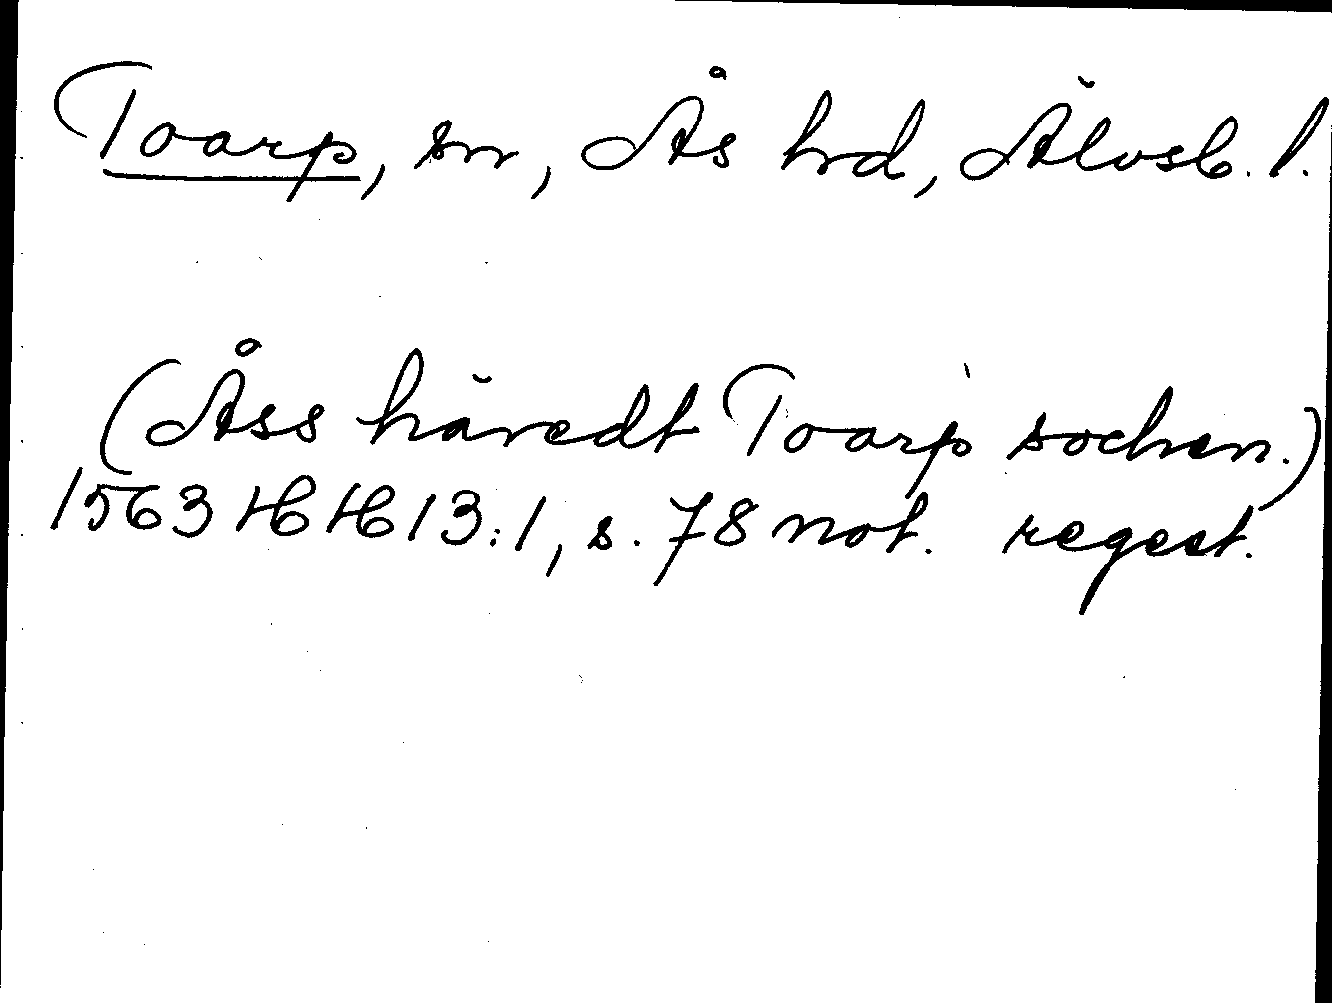 Toarp, sn, Ås hrd, Älvsb. l.
(Åss häredt Toarp sochen.)
1563 HH 13:1, s. 78 not. regest.